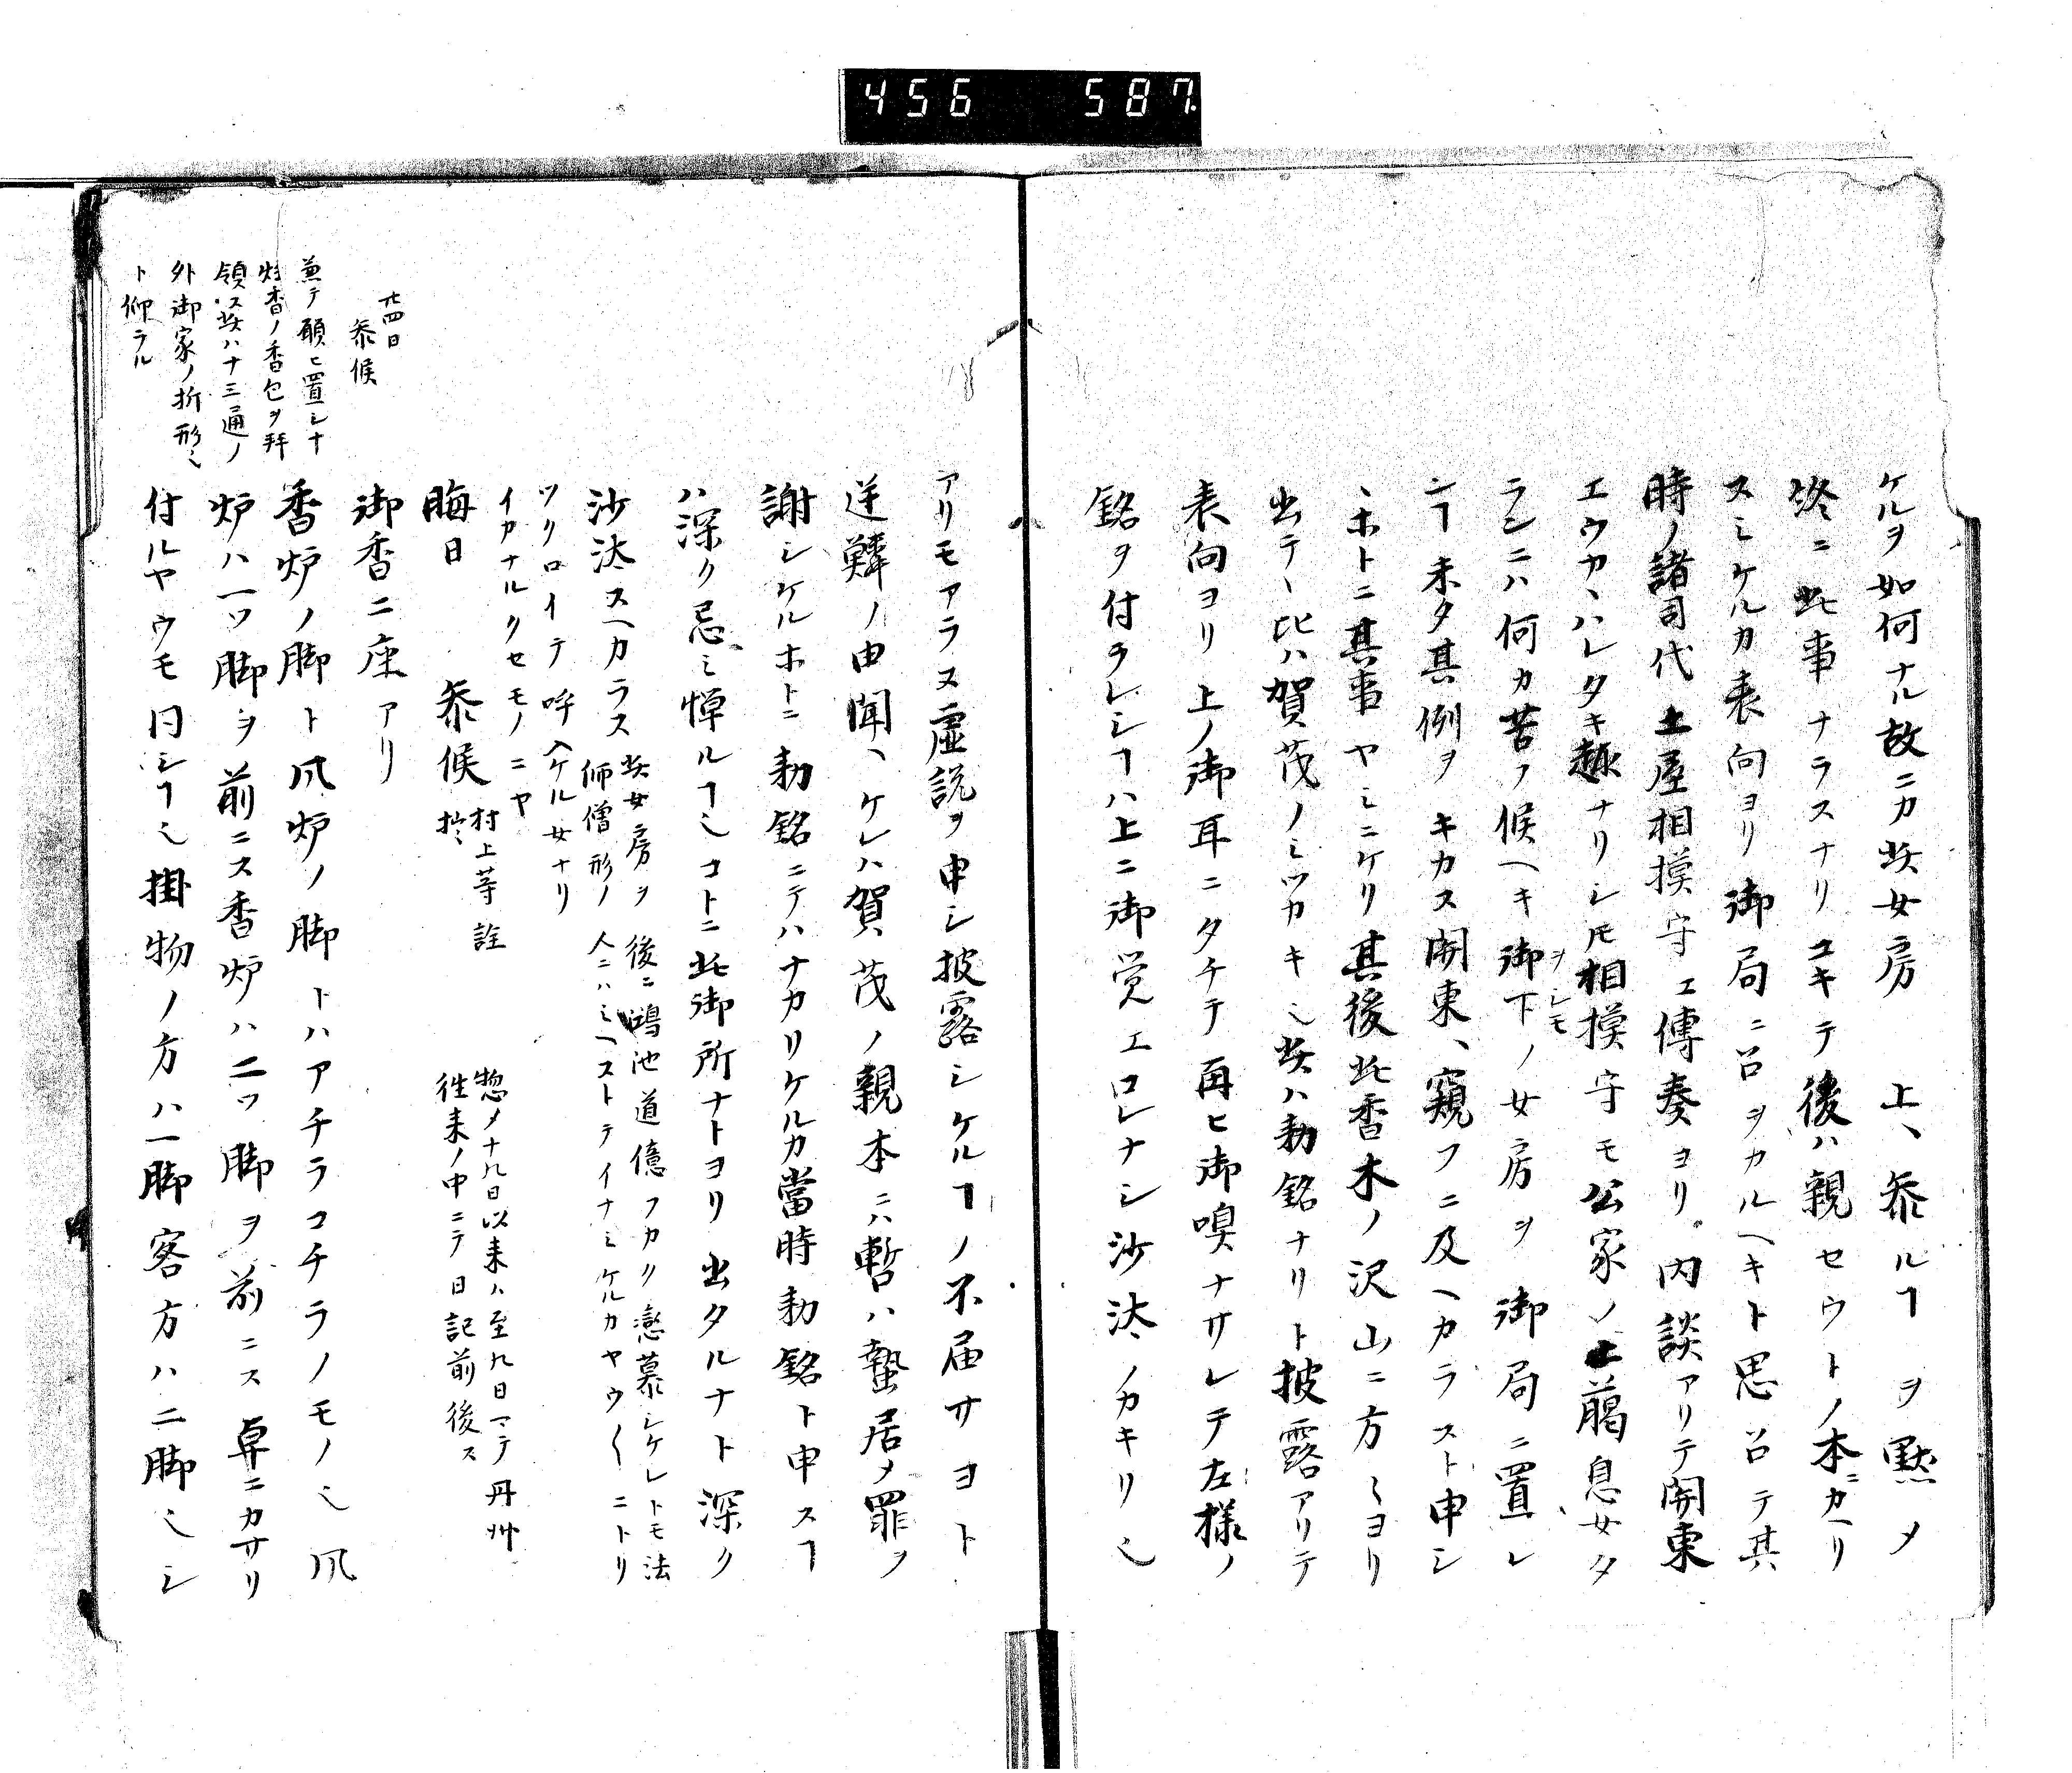 456 587.
ケルヲ如何ナル故ニカ此女房 上ヽ参ルヿヲ黙メ
終ニ此事ナラスナリユキテ後ハ親セウトノ本ニカヘリ
スミケルカ表向ヨリ御局ニ召ヲカルヘキト思召テ其
時ノ諸司代土屋相摸守エ傳奏ヨリ内談アリテ関東
エウカヽハレタキ趣ナリシ𪜈相摸守モ公家ノ上臈息女タ
ランニハ何カ苦ノ候ヘキ御下ノ女房ヲ御局ニ置レ
ヲレモ
ンヿ未タ其例ヲキカス関東ヽ窺フニ及ヘカラスト申シ
ヽホトニ其事ヤミニケリ其後此香木ノ沢山ニ方〻ヨリ
出テヽ比ハ賀茂ノミツカキ也此ハ勅銘ナリト披露アリテ
表向ヨリ上ノ御耳ニタチテ再ヒ御嗅ナサレテ左様ノ
銘ヲ付ラレシヿハ上ニ御覚エロレナシ沙汰ノカキリ也
アリモアラヌ虚説ヲ申シ披露シケルヿノ不届サヨト
逆鱗ノ由聞ヽケレハ賀茂ノ親本ニハ暫ハ蟄居メ罪ヲ
謝シケルホトニ勅銘ニテハナカリケルカ當時勅銘ト申スヿ
ハ深ク忌ミ憚ルヿ也コトニ此御所ナトヨリ出タルナト深ク
沙汰スヘカラス 此女房ヲ後ニ鴻池道億フカク戀慕シケレトモ法
師僧形ノ人ニハミヘストテイナミケルカヤウ〱ニトリ
ツクロイテ呼入ケル女ナリ
イカナルクセモノニヤ
晦日 参候 村上等詮
於
惣メ十九日以来ハ至九日マテ丹州
往来ノ中ニテ日記前後ス
御香ニ座アリ
香炉ノ脚ト風炉ノ脚トハアチラコチラノモノ也風
炉ハ一ツ脚ヲ前ニス香炉ハ二ツ脚ヲ前ニス卓ニカサリ
付ルヤウモ同シヿ也掛物ノ方ハ一脚客方ハ二脚也シ
廿四日
参候
兼テ願ヒ置シ十
炷香ノ香包ヲ拜
領ス此ハ十三通ノ
外御家ノ折形也
ト仰ラル